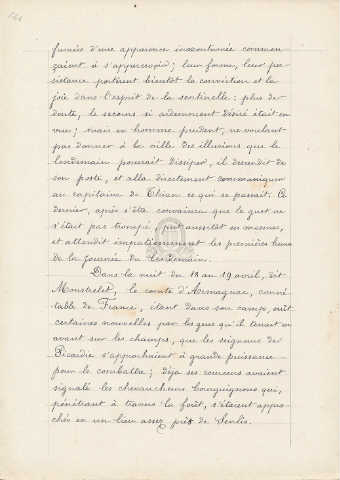 fumées d'une apparence inaccoutumée commen
çaient à s'apercevoir ; leur forme, leur per
sistance portèrent bientôt la conviction et la
joie dans l'esprit de la sentinelle : plus de
doute, le secours si ardemment désiré était en
vue ; mais en homme prudent, ne voulant
pas donner à la ville des illusions que le
lendemain pourrait dissiper, il descendit de
son poste, et alla directement communiquer
au capitaine de Thian ce qui se passait. Ce
dernier, après s'être convaincu que le guet ne
s'était pas trompé, prit aussitôt ses mesures,
et attendit impatiemment les premières lueurs
de la journée du lendemain.
Dans la nuit du 18 au 19 avril, dit
Monstrelet, le comte d'Armagnac, conné
table de France, étant dans son camp, ouït
certaines nouvelles par les gens qu'il tenait en
avant sur les champs, que les seigneurs de
Picardie s'approchaient à grande puissance
pour le combattre ; déjà ses coureurs avaient
signalé les chevaucheurs bourguignons qui,
pénétrant à travers la forêt, s'étaient appro
chés en un lieu assez près de Senlis.